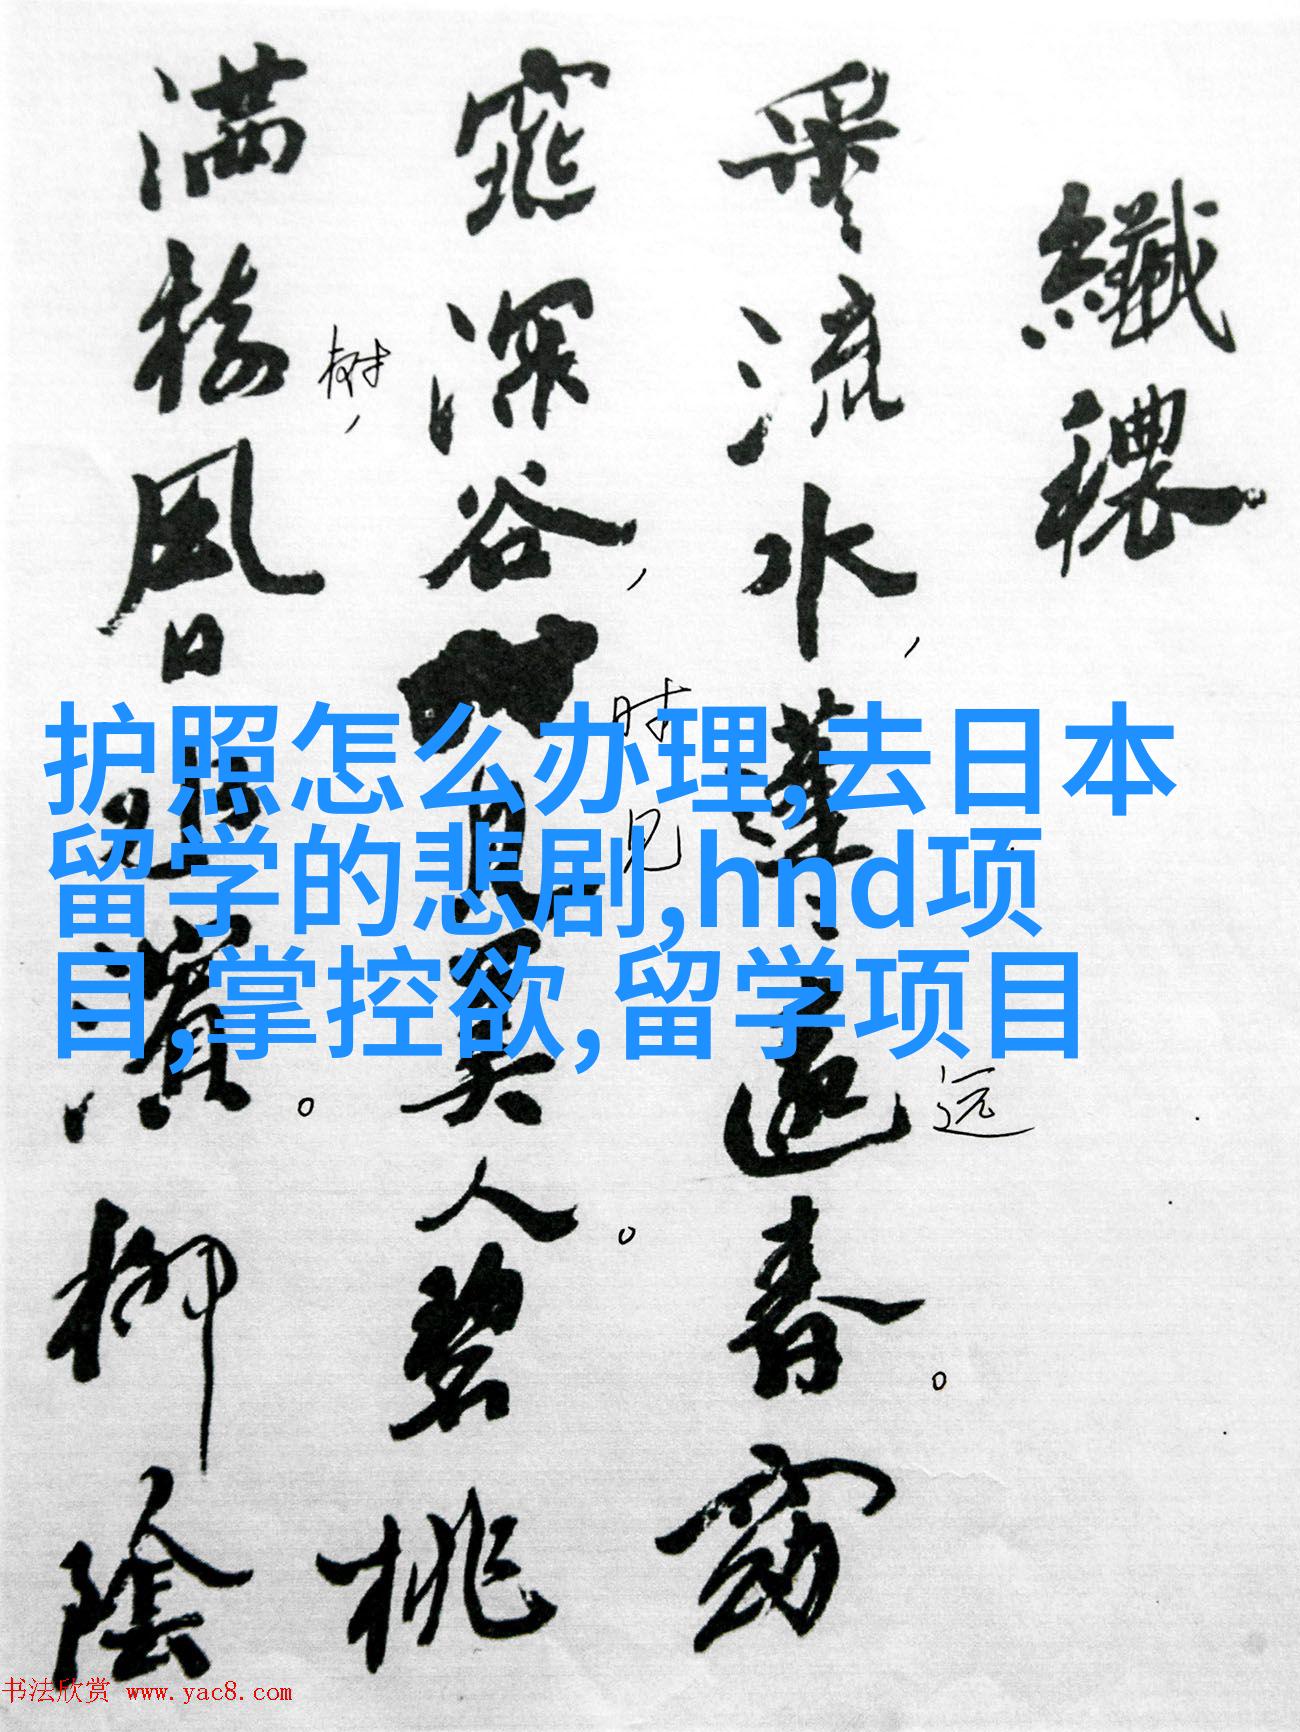 纖穠
采流水，蓬遠春。窈
远
窕深谷，見美人。碧桃
时见
满樹風日濱。柳陰
树，
护照怎么办理,去日本
留学的悲剧,hnd项
目,掌控欲,留学项目
书法欣赏 www.yac8.com